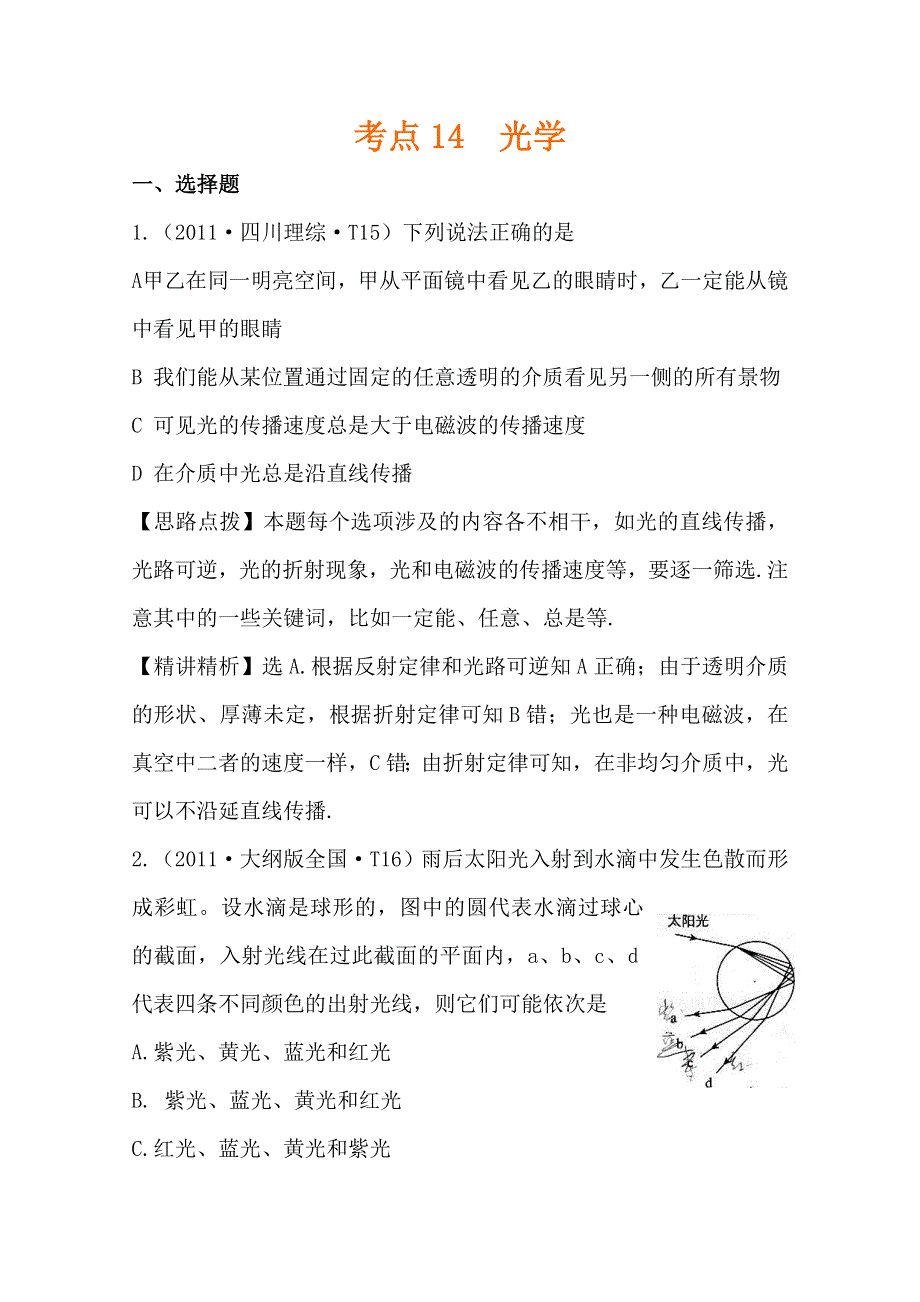 考点14 光学
一、选择题
1.（2011·四川理综·T15）下列说法正确的是
A甲乙在同一明亮空间，甲从平面镜中看见乙的眼睛时，乙一定能从镜
中看见甲的眼睛
B 我们能从某位置通过固定的任意透明的介质看见另一侧的所有景物
C 可见光的传播速度总是大于电磁波的传播速度
D 在介质中光总是沿直线传播
【思路点拨】本题每个选项涉及的内容各不相干，如光的直线传播，
光路可逆，光的折射现象，光和电磁波的传播速度等，要逐一筛选.注
意其中的一些关键词，比如一定能、任意、总是等.
【精讲精析】选A.根据反射定律和光路可逆知A正确；由于透明介质
的形状、厚薄未定，根据折射定律可知B错；光也是一种电磁波，在
真空中二者的速度一样，C错；由折射定律可知，在非均匀介质中，光
可以不沿延直线传播.
2.（2011·大纲版全国·T16）雨后太阳光入射到水滴中发生色散而形
成彩虹。设水滴是球形的，图中的圆代表水滴过球心
的截面，入射光线在过此截面的平面内，a、b、c、d
代表四条不同颜色的出射光线，则它们可能依次是
A.紫光、黄光、蓝光和红光
B. 紫光、蓝光、黄光和红光
C.红光、蓝光、黄光和紫光
太阳光
紫
a
蓝
b
黄
c
红
d